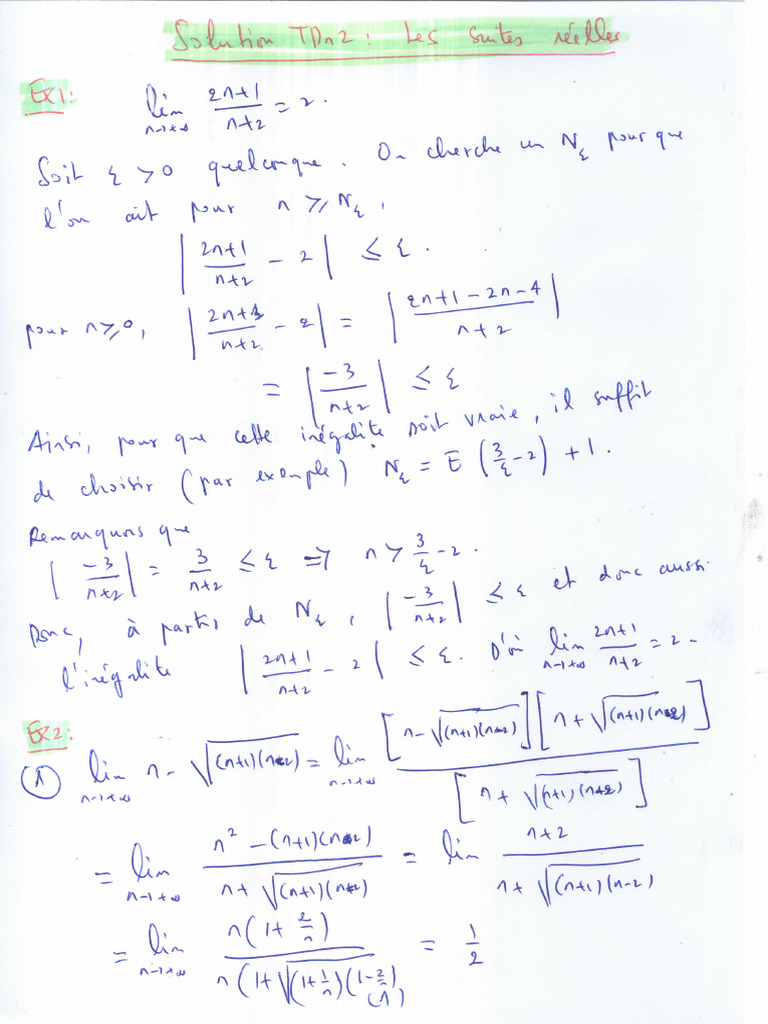 Solution TDn2 : Les suites réelles
Ex1: lim n→+∞ (2n+1)/(n+2) = 2.
Soit ε > 0 quelconque. On cherche un N_ε pour que
l'on ait pour n ≥ N_ε,
| (2n+1)/(n+2) − 2 | ≤ ε.
pour n ≥ 0, | (2n+1)/(n+2) − 2 | = | (2n+1−2n−4)/(n+2) |
= | −3/(n+2) | ≤ ε
Ainsi, pour que cette inégalité soit vraie, il suffit
de choisir (par exemple) N_ε = E(3/ε − 2) + 1.
Remarquons que
| −3/(n+2) | = 3/(n+2) ≤ ε ⇒ n > 3/ε − 2.
Donc, à partir de N_ε, | −3/(n+2) | ≤ ε et donc aussi
l'inégalité | (2n+1)/(n+2) − 2 | ≤ ε. D'où lim n→+∞ (2n+1)/(n+2) = 2.
Ex2:
① lim n→+∞ n − √((n+1)(n−2)) = lim n→+∞ [n − √((n+1)(n−2))][n + √((n+1)(n−2))] / [n + √((n+1)(n−2))]
= lim n→+∞ (n² − (n+1)(n−2)) / (n + √((n+1)(n−2))) = lim (n+2) / (n + √((n+1)(n−2)))
= lim n→+∞ n(1 + 2/n) / n(1 + √((1+1/n)(1−2/n)) = 1/2
(1)